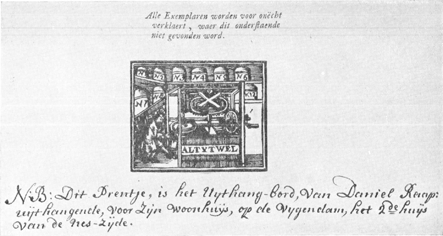 Alle Exemplaren worden voor onëcht
verklaert, waer dit onderstaende
niet gevonden word.
ALTYTWEL
NB: Dit Prentje, is het Uythang-bord, van Daniel Raap:
uijthangende, voor Zijn woonhuijs, op de Vygendam, het 2de huijs
van de Nes-Zijde.